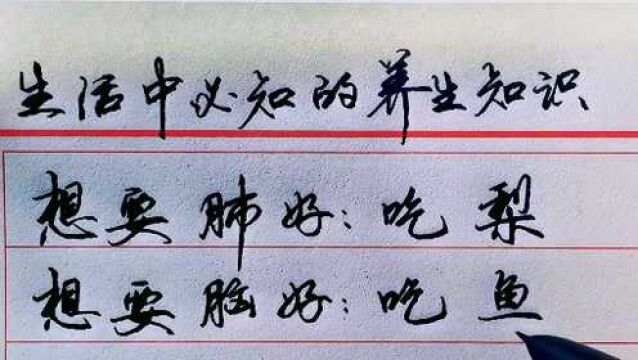 生活中必知的养生知识
想要肺好：吃梨
想要脑好：吃鱼